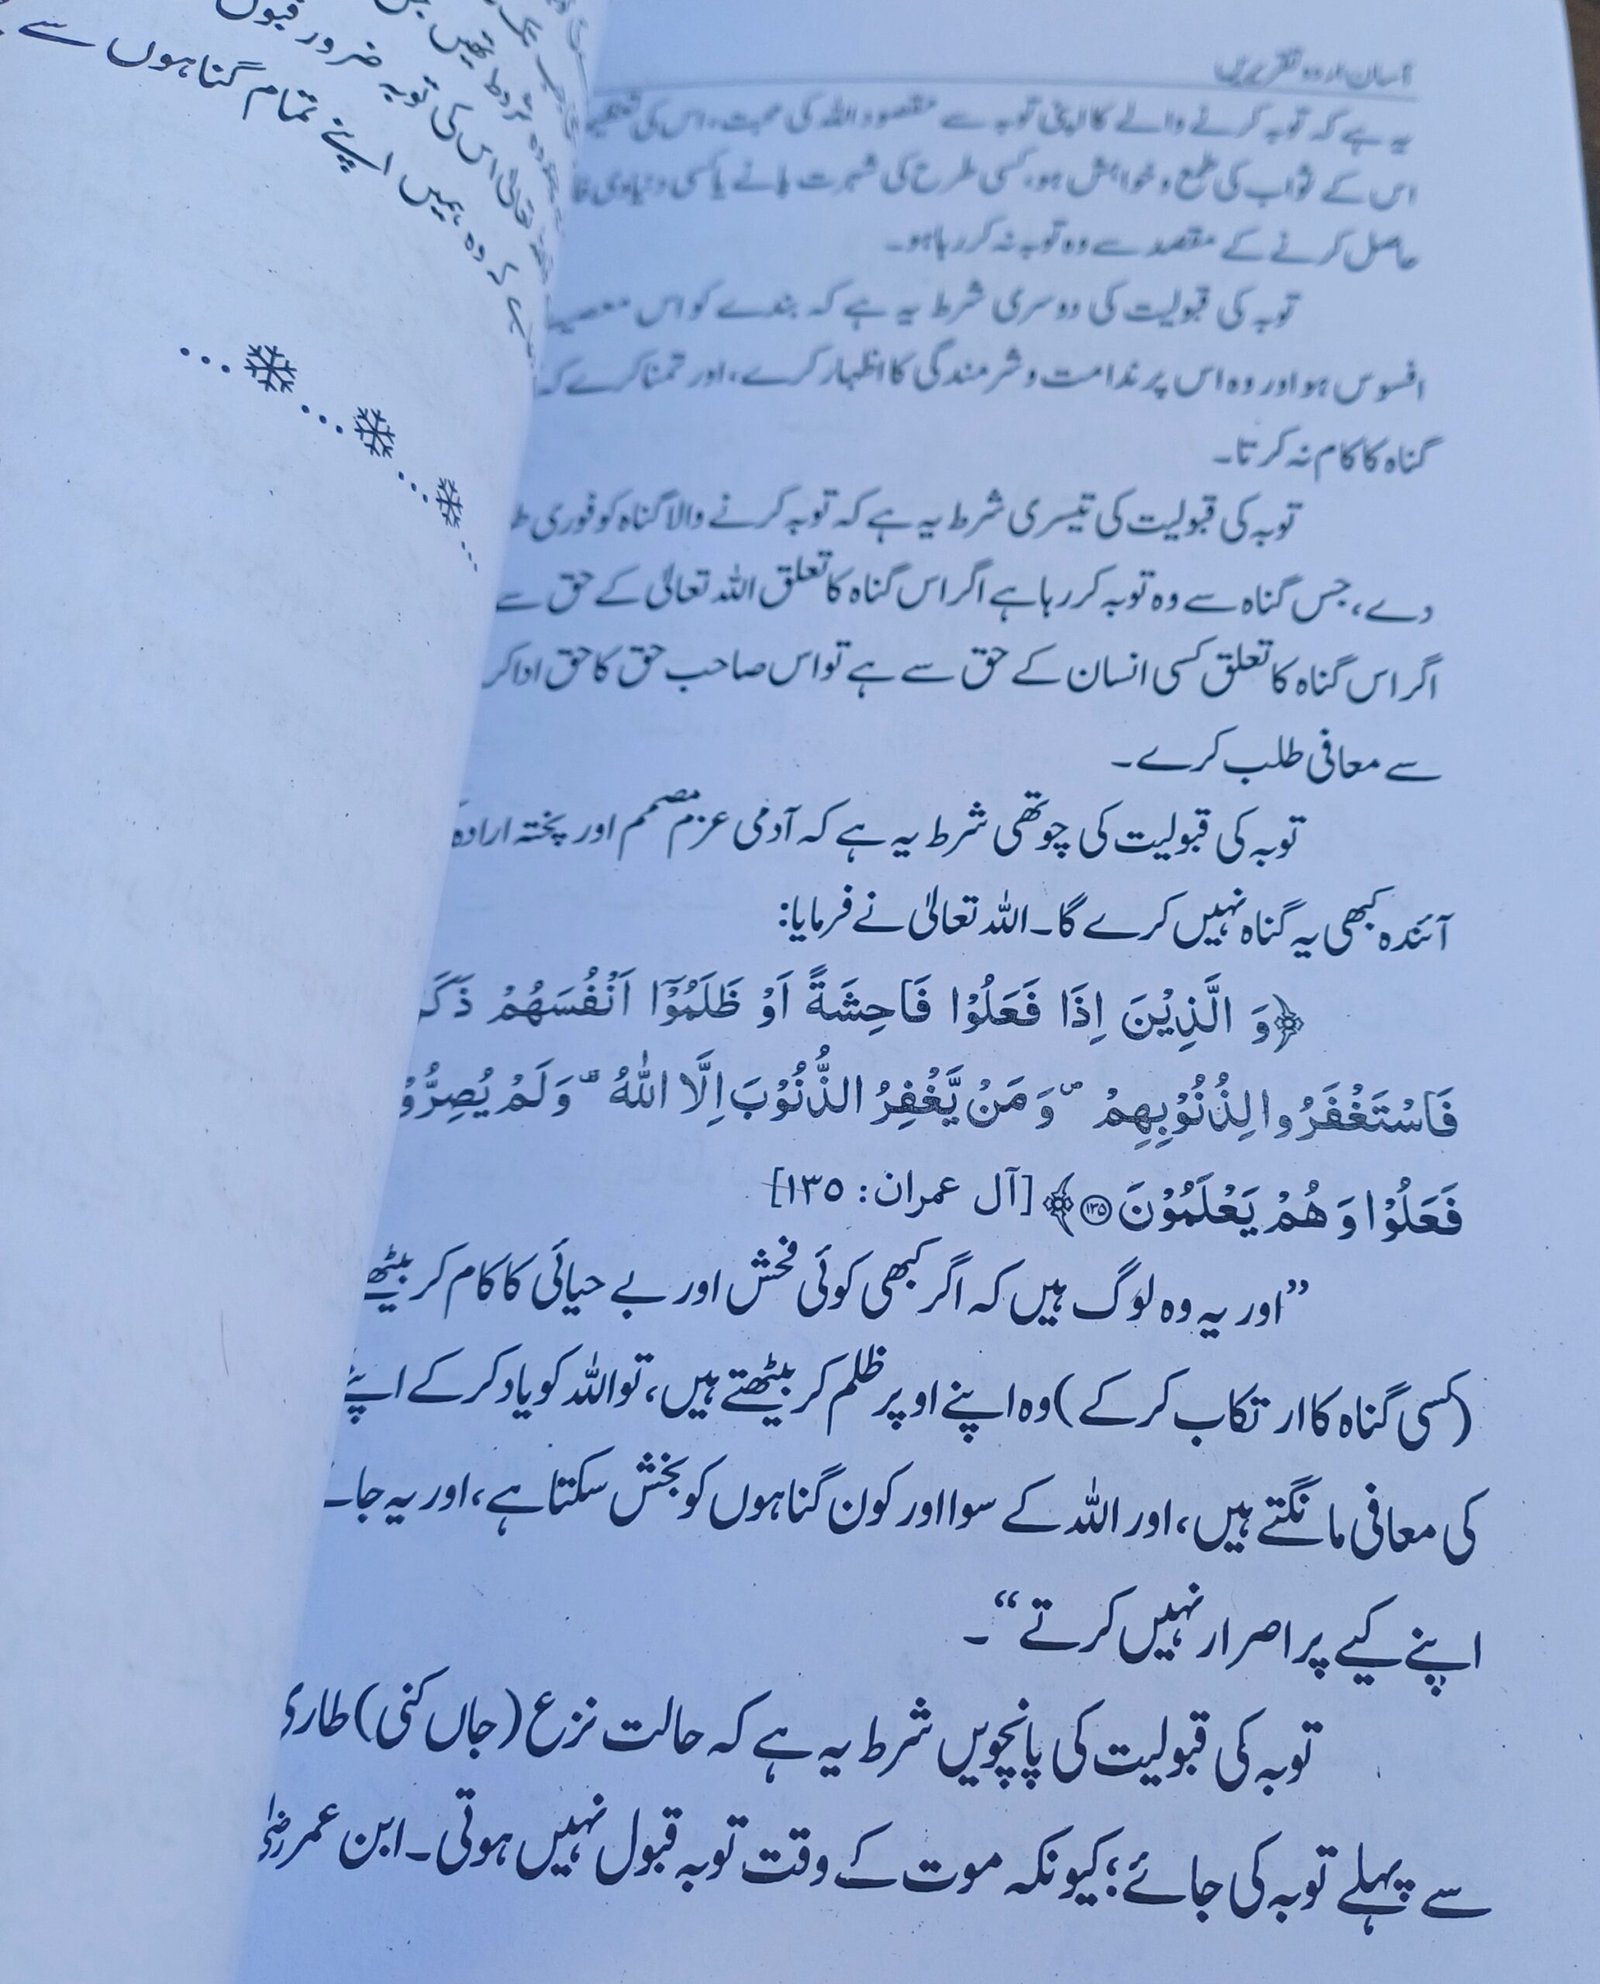 آسان اردو تقریریں
یہ ہے کہ توبہ کرنے والے کا اپنی توبہ سے مقصود اللہ کی محبت، اس کی
اس کے ثواب کی طمع و خواہش ہو، کسی طرح کی شہرت پانے یا کسی دنیاوی
حاصل کرنے کے مقصد سے وہ توبہ نہ کر رہا ہو۔
توبہ کی قبولیت کی دوسری شرط یہ ہے کہ بندے کو اس
افسوس ہو اور وہ اس پر ندامت و شرمندگی کا اظہار کرے، اور تمنا کرے کہ
گناہ کا کام نہ کرتا۔
توبہ کی قبولیت کی تیسری شرط یہ ہے کہ توبہ کرنے والا گناہ کو فوری
دے، جس گناہ سے وہ توبہ کر رہا ہے اگر اس گناہ کا تعلق اللہ تعالیٰ کے حق سے
اگر اس گناہ کا تعلق کسی انسان کے حق سے ہے تو اس صاحب حق کا حق ادا کر
سے معافی طلب کرے۔
توبہ کی قبولیت کی چوتھی شرط یہ ہے کہ آدمی عزم مصمم اور پختہ ارادہ
آئندہ کبھی یہ گناہ نہیں کرے گا۔ اللہ تعالیٰ نے فرمایا:
﴿وَ الَّذِیْنَ اِذَا فَعَلُوْا فَاحِشَةً اَوْ ظَلَمُوْۤا اَنْفُسَهُمْ
فَاسْتَغْفَرُوا لِذُنُوْبِهِمْ ۪ وَ مَنْ یَّغْفِرُ الذُّنُوْبَ اِلَّا اللّٰهُ ۪ وَ لَمْ یُصِرُّوْ
فَعَلُوْا وَ هُمْ یَعْلَمُوْنَ ۝۱۳۵﴾ [آل عمران: ۱۳۵]
”اور یہ وہ لوگ ہیں کہ اگر کبھی کوئی فحش اور بے حیائی کا کام کر بیٹھے
(کسی گناہ کا ارتکاب کر کے) وہ اپنے اوپر ظلم کر بیٹھتے ہیں، تو اللہ کو یاد کر کے اپنے
کی معافی مانگتے ہیں، اور اللہ کے سوا اور کون گناہوں کو بخش سکتا ہے، اور یہ
اپنے کیے پر اصرار نہیں کرتے“۔
توبہ کی قبولیت کی پانچویں شرط یہ ہے کہ حالت نزع (جاں کنی) طاری
سے پہلے توبہ کی جائے؛ کیونکہ موت کے وقت توبہ قبول نہیں ہوتی۔ ابن عمر
تعالیٰ اس کی توبہ ضرور قبول
کہ وہ ہمیں اپنے تمام گناہوں سے